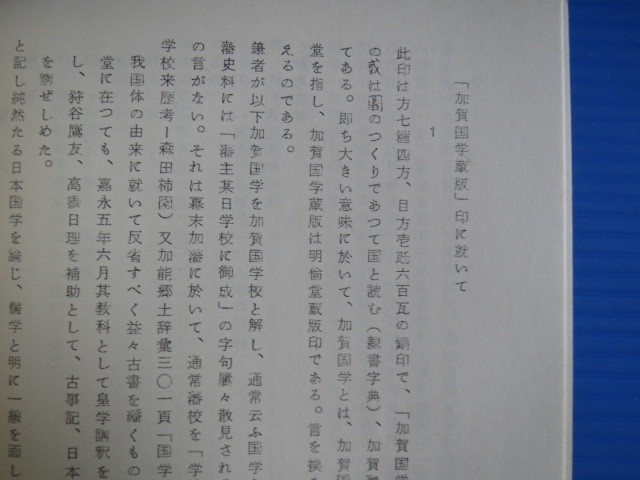 「加賀国学蔵版」印に就いて
1
此印は方七糎四方、目方壱瓩六百瓦の銅印で、「加賀国学
の或は圀のつくりであつて国と読む(隷書字典)、加賀
てある。即ち大きい意味に於いて、加賀国学とは、加賀国
堂を指し、加賀国学蔵版は明倫堂蔵版印である。言を換
えるのである。
筆者が以下加賀国学を加賀国学校と解し、通常云ふ国学
藩史料には「藩主某日学校に御成」の字句屢々散見され
の言がない。それは幕末加藩に於いて、通常藩校を「学
学校来歴考ー森田柿園)又加能郷土辞彙三〇一頁「国学
我国体の由来に就いて反省すべく益々古書を繙くもの
堂に在つても、嘉永五年六月其教科として皇学講釈を
し、狩谷鷹友、高橋日理を補助として、古事記、日本
を講ぜしめた。
と記し純然たる日本国学を論じ、儒学と明に一線を画し